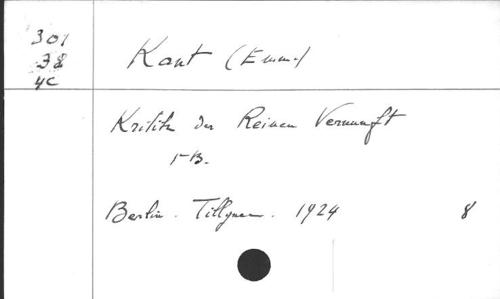 301
38
4C
Kant (Emm.)
Kritik der Reinen Vernunft
1 B.
Berlin. Tillgner. 1924 8